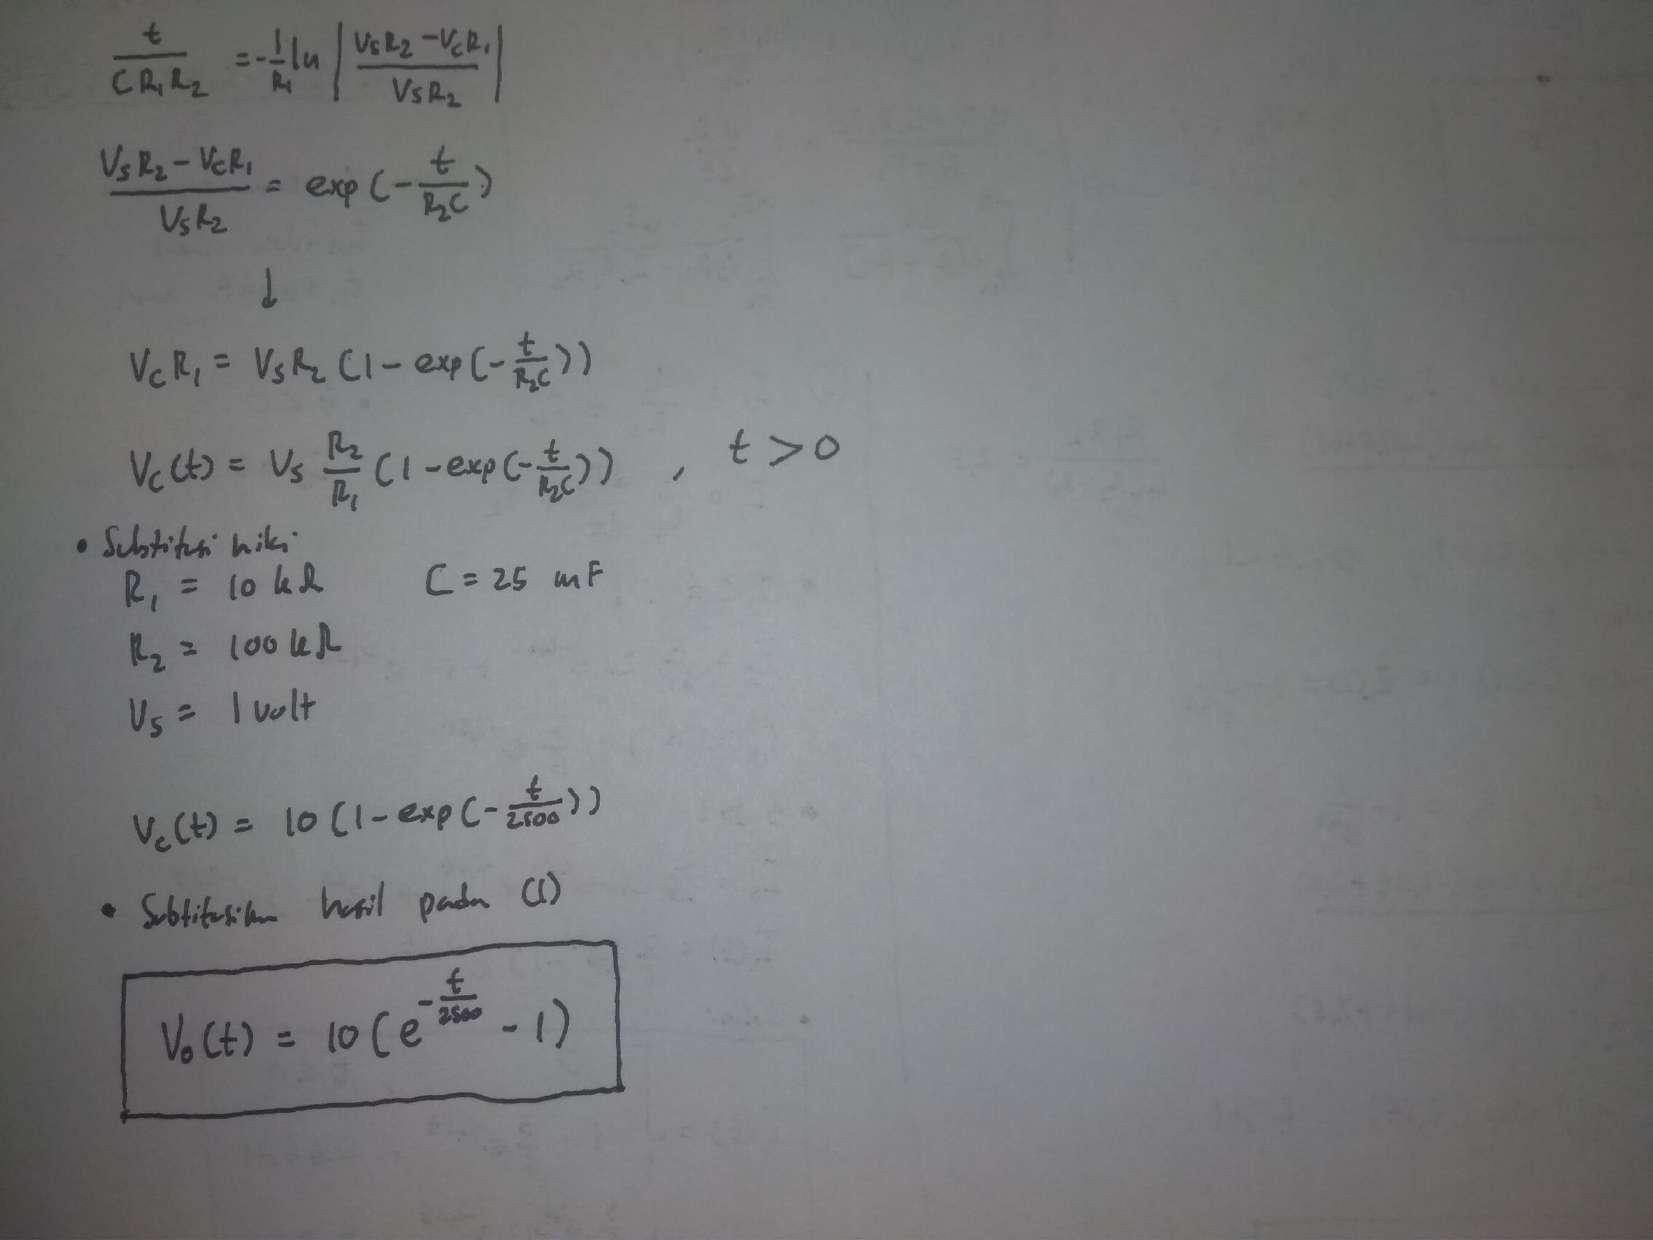 t/(C R₁ R₂) = -1/R₁ ln |(VsR₂ - VcR₁)/(VsR₂)|
(VsR₂ - VcR₁)/(VsR₂) = exp(-t/(R₂C))
↓
VcR₁ = VsR₂ (1 - exp(-t/(R₂C)))
Vc(t) = Vs R₂/R₁ (1 - exp(-t/(R₂C))) , t > 0
• Substitusi
R₁ = 10 kΩ C = 25 mF
R₂ = 100 kΩ
Vs = 1 volt
Vc(t) = 10 (1 - exp(-t/2500))
• Subtitusikan hasil pada (1)
V₀(t) = 10 (e^(-t/2500) - 1)